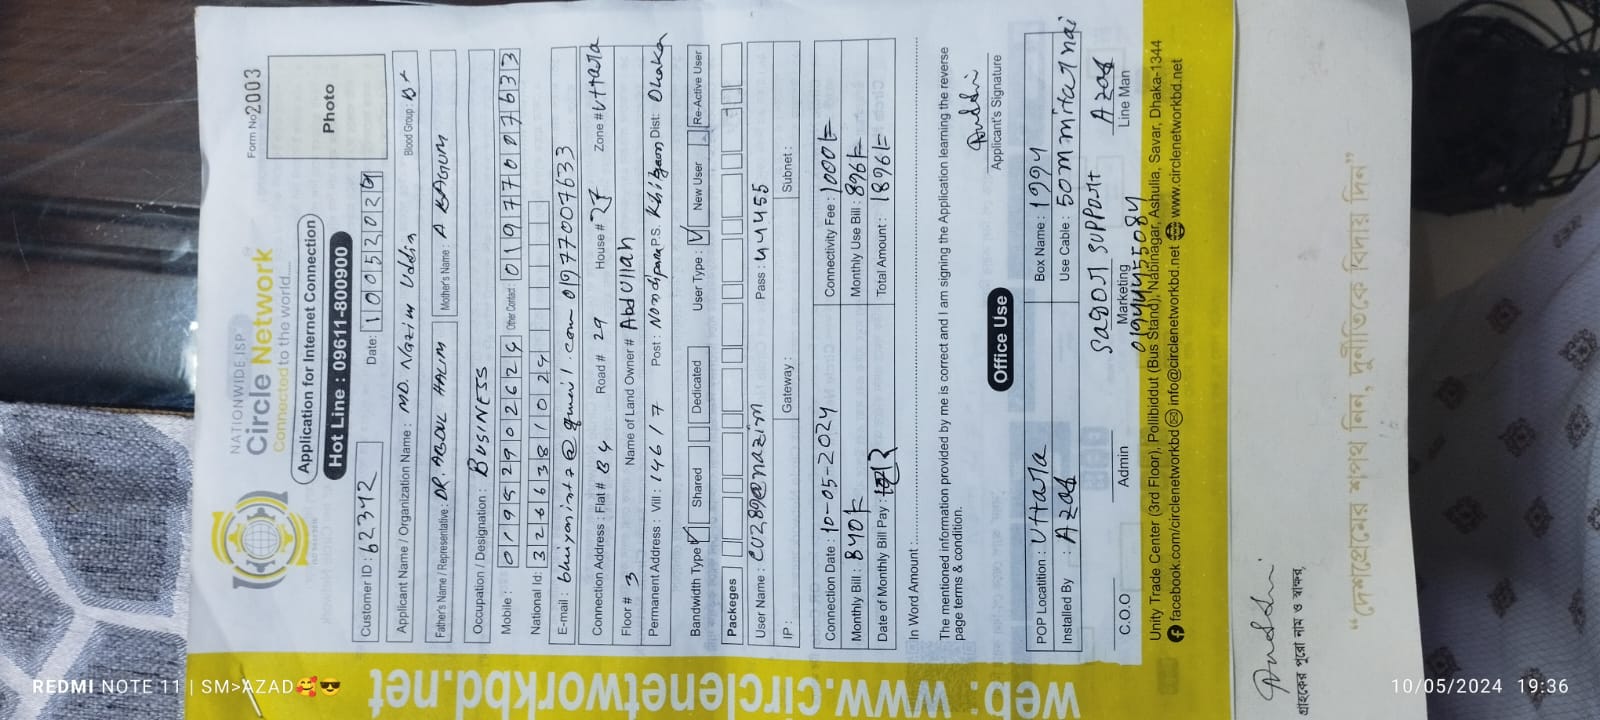 NATIONWIDE ISP
Circle Network
Connected to the world.....
Form No 2003
Application for Internet Connection
Hot Line : 09611-800900
Photo
Customer ID : 62342 Date: 10052024
Applicant Name / Organization Name : MD. Nazim Uddin Blood Group : B+
Father's Name / Representative : DR. ABDUL HALIM Mother's Name : A BAGUM
Occupation / Designation : BUSINESS
Mobile : Other Contact : 01977007633
National Id:
E-mail : @gmail.com 01977007633
Connection Address : Flat # B4 Road # 29 House # 27 Zone # Uttara
Floor # 3 Name of Land Owner # Abdullah
Permanent Address : Vill : 146/7 Post : P.S. Dist: Dhaka
Bandwidth Type Shared Dedicated User Type : New User Re-Active User
Packeges
User Name : CU289@nazim Pass : 44455
IP : Gateway : Subnet :
Connection Date : 10-05-2024 Connectivity Fee : 1000/=
Monthly Bill : 840/= Monthly Use Bill : 896/=
Date of Monthly Bill Pay : Total Amount : 1896/=
In Word Amount
The mentioned information provided by me is correct and I am signing the Application learning the reverse
page terms & condition.
Applicant's Signature
Office Use
POP Locatition : Uttara Box Name : 1994
Installed By : Azad Use Cable : 50m
Sagor Support Azad
C.O.O Admin Marketing Line Man
01944455084
Unity Trade Center (3rd Floor), Pollibiddut (Bus Stand), Nabinagar, Ashulia, Savar, Dhaka-1344
facebook.com/circlenetworkbd info@circlenetworkbd.net www.circlenetworkbd.net
web: www.circlenetworkbd.net
গ্রাহকের পুরো নাম ও স্বাক্ষর
“দেশপ্রেমের শপথ নিন, দুর্নীতিকে বিদায় দিন”
REDMI NOTE 11 | SM>AZAD🥰😎
10/05/2024 19:36